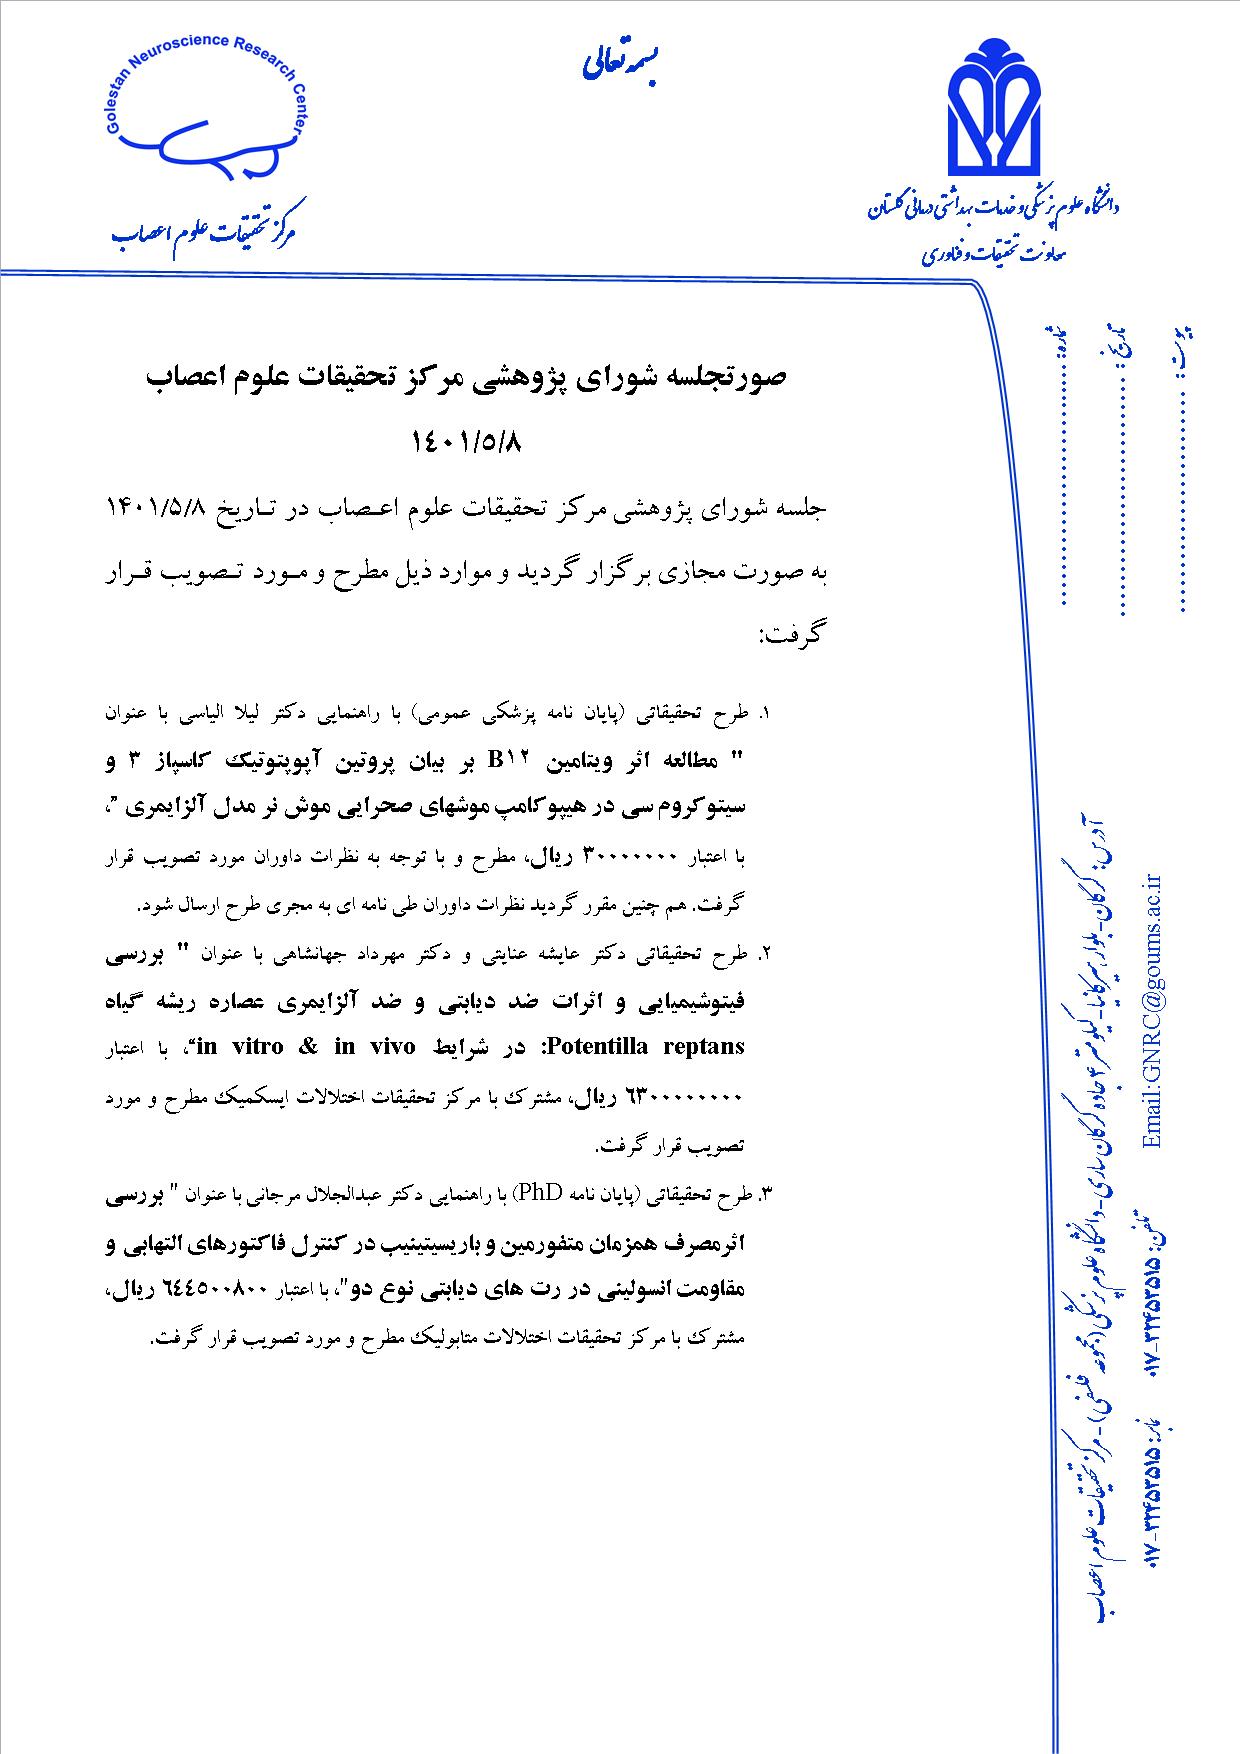 بسمه تعالی
Golestan Neuroscience Research Center
مرکز تحقیقات علوم اعصاب
دانشگاه علوم پزشکی و خدمات بهداشتی درمانی گلستان
معاونت تحقیقات و فناوری
شماره: ................................
تاریخ: ................................
پیوست: ................................
صورتجلسه شورای پژوهشی مرکز تحقیقات علوم اعصاب
۱٤۰۱/۵/۸
جلسه شورای پژوهشی مرکز تحقیقات علوم اعـصاب در تـاریخ ۱۴۰۱/۵/۸
به صورت مجازی برگزار گردید و موارد ذیل مطرح و مـورد تـصویب قـرار
گرفت:
۱. طرح تحقیقاتی (پایان نامه پزشکی عمومی) با راهنمایی دکتر لیلا الیاسی با عنوان
" مطالعه اثر ویتامین B۱۲ بر بیان پروتین آپوپتوتیک کاسپاز ۳ و
سیتوکروم سی در هیپوکامپ موشهای صحرایی موش نر مدل آلزایمری ”،
با اعتبار ۳۰۰۰۰۰۰۰ ریال، مطرح و با توجه به نظرات داوران مورد تصویب قرار
گرفت. هم چنین مقرر گردید نظرات داوران طی نامه ای به مجری طرح ارسال شود.
۲. طرح تحقیقاتی دکتر عایشه عنایتی و دکتر مهرداد جهانشاهی با عنوان " بررسی
فیتوشیمیایی و اثرات ضد دیابتی و ضد آلزایمری عصاره ریشه گیاه
Potentilla reptans: در شرایط in vitro & in vivo“، با اعتبار
٦۳۰۰۰۰۰۰۰۰ ریال، مشترک با مرکز تحقیقات اختلالات ایسکمیک مطرح و مورد
تصویب قرار گرفت.
۳. طرح تحقیقاتی (پایان نامه PhD) با راهنمایی دکتر عبدالجلال مرجانی با عنوان " بررسی
اثرمصرف همزمان متفورمین و باریسیتینیب در کنترل فاکتورهای التهابی و
مقاومت انسولینی در رت های دیابتی نوع دو"، با اعتبار ٦٤٤٥۰۰۸۰۰ ریال،
مشترک با مرکز تحقیقات اختلالات متابولیک مطرح و مورد تصویب قرار گرفت.
آدرس: گرگان-بلوار هیرکانیا-کیلومتر ۴ جاده گرگان ساری-دانشگاه علوم پزشکی (مجموعه فلسفی)-مرکز تحقیقات علوم اعصاب
Email:GNRC@goums.ac.ir
تلفن: ۰۱۷-۳۲۴۵۳۵۱۵
نمابر: ۰۱۷-۳۲۴۵۳۵۱۵